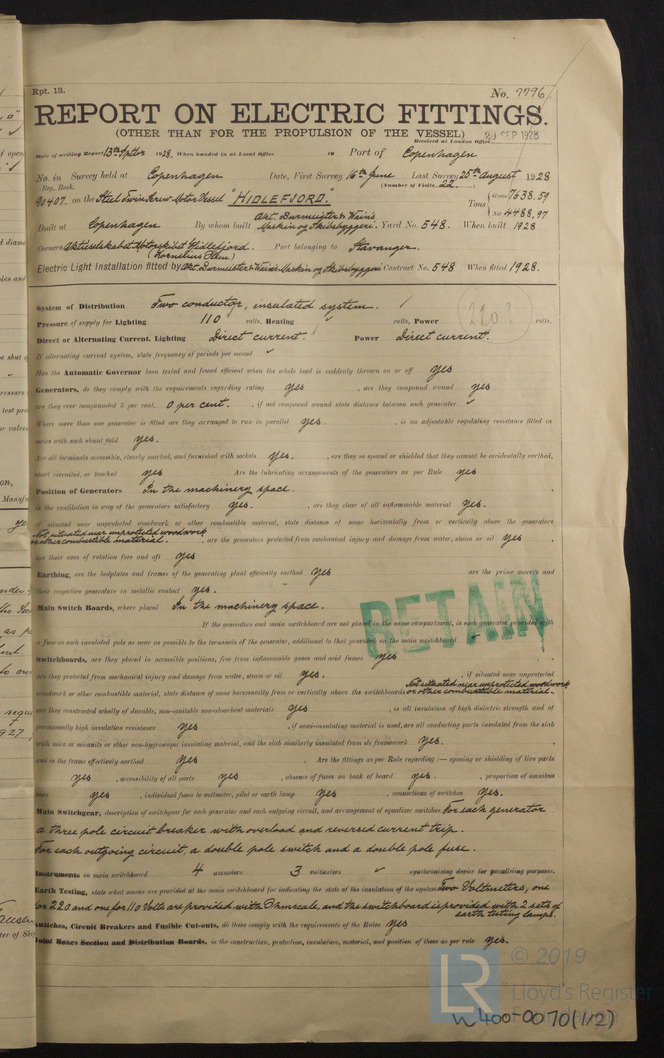 Rpt. 13.
No. 7796
REPORT ON ELECTRIC FITTINGS.
(OTHER THAN FOR THE PROPULSION OF THE VESSEL)
Received at London Office 20 SEP 1928
Date of writing Report 13th Septbr 1928. When handed in at Local Office 19 Port of Copenhagen
No. in Survey held at Copenhagen Date, First Survey 16th June Last Survey 25th August 1928
Reg. Book. (Number of Visits 22.)
90407. on the Steel Twin Screw Motor Vessel "HIDLEFJORD." Tons { Gross 7638,59
Net 4488,97
Built at Copenhagen By whom built Akt. Burmeister & Wain's Maskin og Skibsbyggeri. Yard No. 548. When built 1928
Owners Aktieselskabet Motorskibet Hidlefjord. Port belonging to Stavanger.
(Kornelius Olsen)
Electric Light Installation fitted by Akt. Burmeister & Wain's Maskin og Skibsbyggeri Contract No. 548 When fitted 1928.
System of Distribution Two conductor, insulated system.
Pressure of supply for Lighting 110 volts, Heating volts, Power 220? volts.
Direct or Alternating Current, Lighting Direct current. Power Direct current.
If alternating current system, state frequency of periods per second
Has the Automatic Governor been tested and found efficient when the whole load is suddenly thrown on or off yes
Generators, do they comply with the requirements regarding rating yes, are they compound wound yes
are they over compounded 5 per cent. 0 per cent., if not compound wound state distance between each generator
Where more than one generator is fitted are they arranged to run in parallel yes., is an adjustable regulating resistance fitted in
series with each shunt field yes.
Are all terminals accessible, clearly marked, and furnished with sockets yes., are they so spaced or shielded that they cannot be accidentally earthed,
short circuited, or touched yes Are the lubricating arrangements of the generators as per Rule yes
Position of Generators In the machinery space.
is the ventilation in way of the generators satisfactory yes., are they clear of all inflammable material yes.
if situated near unprotected woodwork or other combustible material, state distance of same horizontally from or vertically above the generators
Not situated near unprotected woodwork
or other combustible material., are the generators protected from mechanical injury and damage from water, steam or oil yes
are their axes of rotation fore and aft yes
Earthing, are the bedplates and frames of the generating plant efficiently earthed yes are the prime movers and
their respective generators in metallic contact yes.
Main Switch Boards, where placed In the machinery space.
If the generators and main switchboard are not placed in the same compartment, is each generator provided with
a fuse on each insulated pole as near as possible to the terminals of the generator, additional to that provided on the main switchboard
RETAIN
Switchboards, are they placed in accessible positions, free from inflammable gases and acid fumes yes
are they protected from mechanical injury and damage from water, steam or oil yes., if situated near unprotected
woodwork or other combustible material, state distance of same horizontally from or vertically above the switchboards Not situated near unprotected woodwork
or other combustible material.
are they constructed wholly of durable, non-ignitable non-absorbent materials yes, is all insulation of high dielectric strength and of
permanently high insulation resistance yes, if semi-insulating material is used, are all conducting parts insulated from the slab
with mica or micanite or other non-hygroscopic insulating material, and the slab similarly insulated from its framework yes.
and is the frame effectively earthed yes Are the fittings as per Rule regarding:— spacing or shielding of live parts
yes, accessibility of all parts yes, absence of fuses on back of board yes., proportion of omnibus
bars yes, individual fuses to voltmeter, pilot or earth lamp yes, connections of switches yes.
Main Switchgear, description of switchgear for each generator and each outgoing circuit, and arrangement of equalizer switches For each generator
a three pole circuit breaker with overload and reversed current trip.
For each outgoing circuit, a double pole switch and a double pole fuse.
Instruments on main switchboard 4 ammeters 3 voltmeters synchronising device for paralleling purposes.
Earth Testing, state what means are provided at the main switchboard for indicating the state of the insulation of the system Two Voltmeters, one
for 220 and one for 110 Volts are provided with Ohmscale, and the switchboard is provided with 2 sets of
earth testing lamps.
Switches, Circuit Breakers and Fusible Cut-outs, do these comply with the requirements of the Rules yes
Joint Boxes Section and Distribution Boards, is the construction, protection, insulation, material, and position of these as per rule yes.
© 2019
LR
Lloyd's Register
Foundation
W400-0070(1/2)